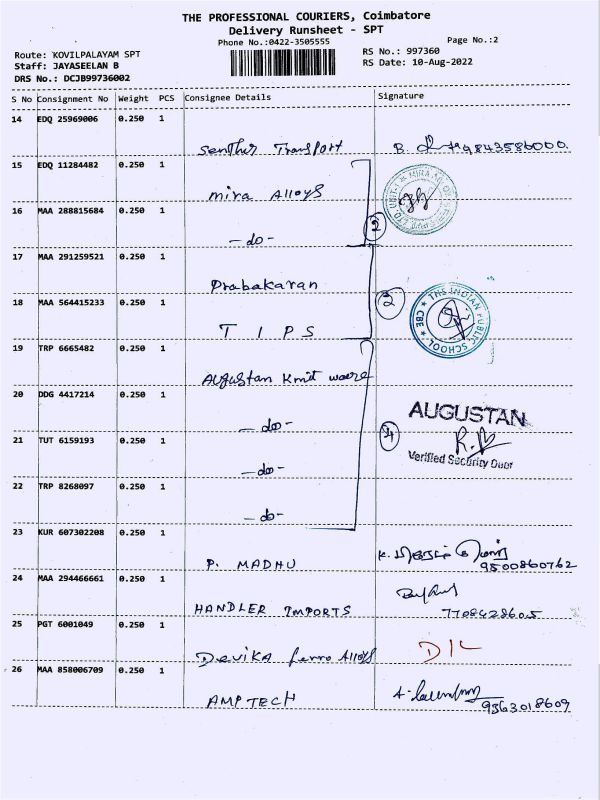 THE PROFESSIONAL COURIERS, Coimbatore
Delivery Runsheet - SPT
Phone No.:0422-3505555
Page No.:2
Route: KOVILPALAYAM SPT
RS No.: 997360
Staff: JAYASEELAN B
RS Date: 10-Aug-2022
DRS No.: DCJB99736002
S No Consignment No Weight PCS Consignee Details Signature
14 EDQ 25969006 0.250 1
Senthir Transport B. 9843586000
15 EDQ 11284482 0.250 1
Mira Alloys
16 MAA 288815684 0.250 1
2
-do-
17 MAA 291259521 0.250 1
Prabakaran
18 MAA 564415233 0.250 1
2
THE INDIAN PUBLIC SCHOOL
★ CBE ★
T I P S
19 TRP 6665482 0.250 1
Augustan Knit weare
20 DDG 4417214 0.250 1
AUGUSTAN
-do-
21 TUT 6159193 0.250 1
4
Verified Security Door
-do-
22 TRP 8268097 0.250 1
-do-
23 KUR 607302208 0.250 1
P. MADHU
9500860762
24 MAA 294466661 0.250 1
HANDLER IMPORTS 7708428605
25 PGT 6001049 0.250 1
Devika ferro Alloys D/L
26 MAA 858006709 0.250 1
AMPTECH 9363018609